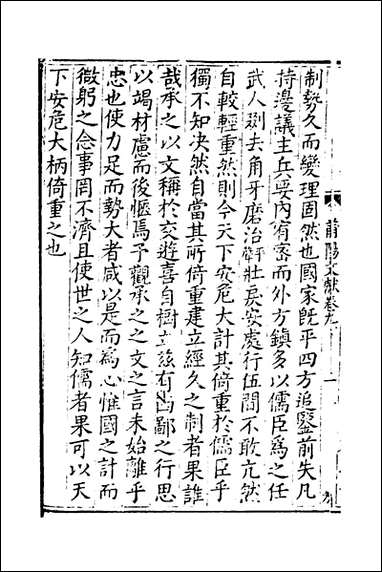 莆陽文獻卷九
一
制勢久而變理固然也國家旣平四方追鑒前失凡
持邊議主兵要內宥密而外方鎮多以儒臣為之任
武人剗去角牙磨治壯戾安處行伍間不敢亢然
自較輕重然則今天下安危大計其倚重於儒臣乎
獨不知決然自當其所倚重建立經久之制者果誰
哉承之以文稱於交遊喜自樹立茲有鄙之行思
以竭材慮而後愜焉予觀承之之文之言未始離乎
忠也使力足而勢大者咸以是而為心惟國之計而
微躬之念事罔不濟且使世之人知儒者果可以天
下安危大柄倚重之也